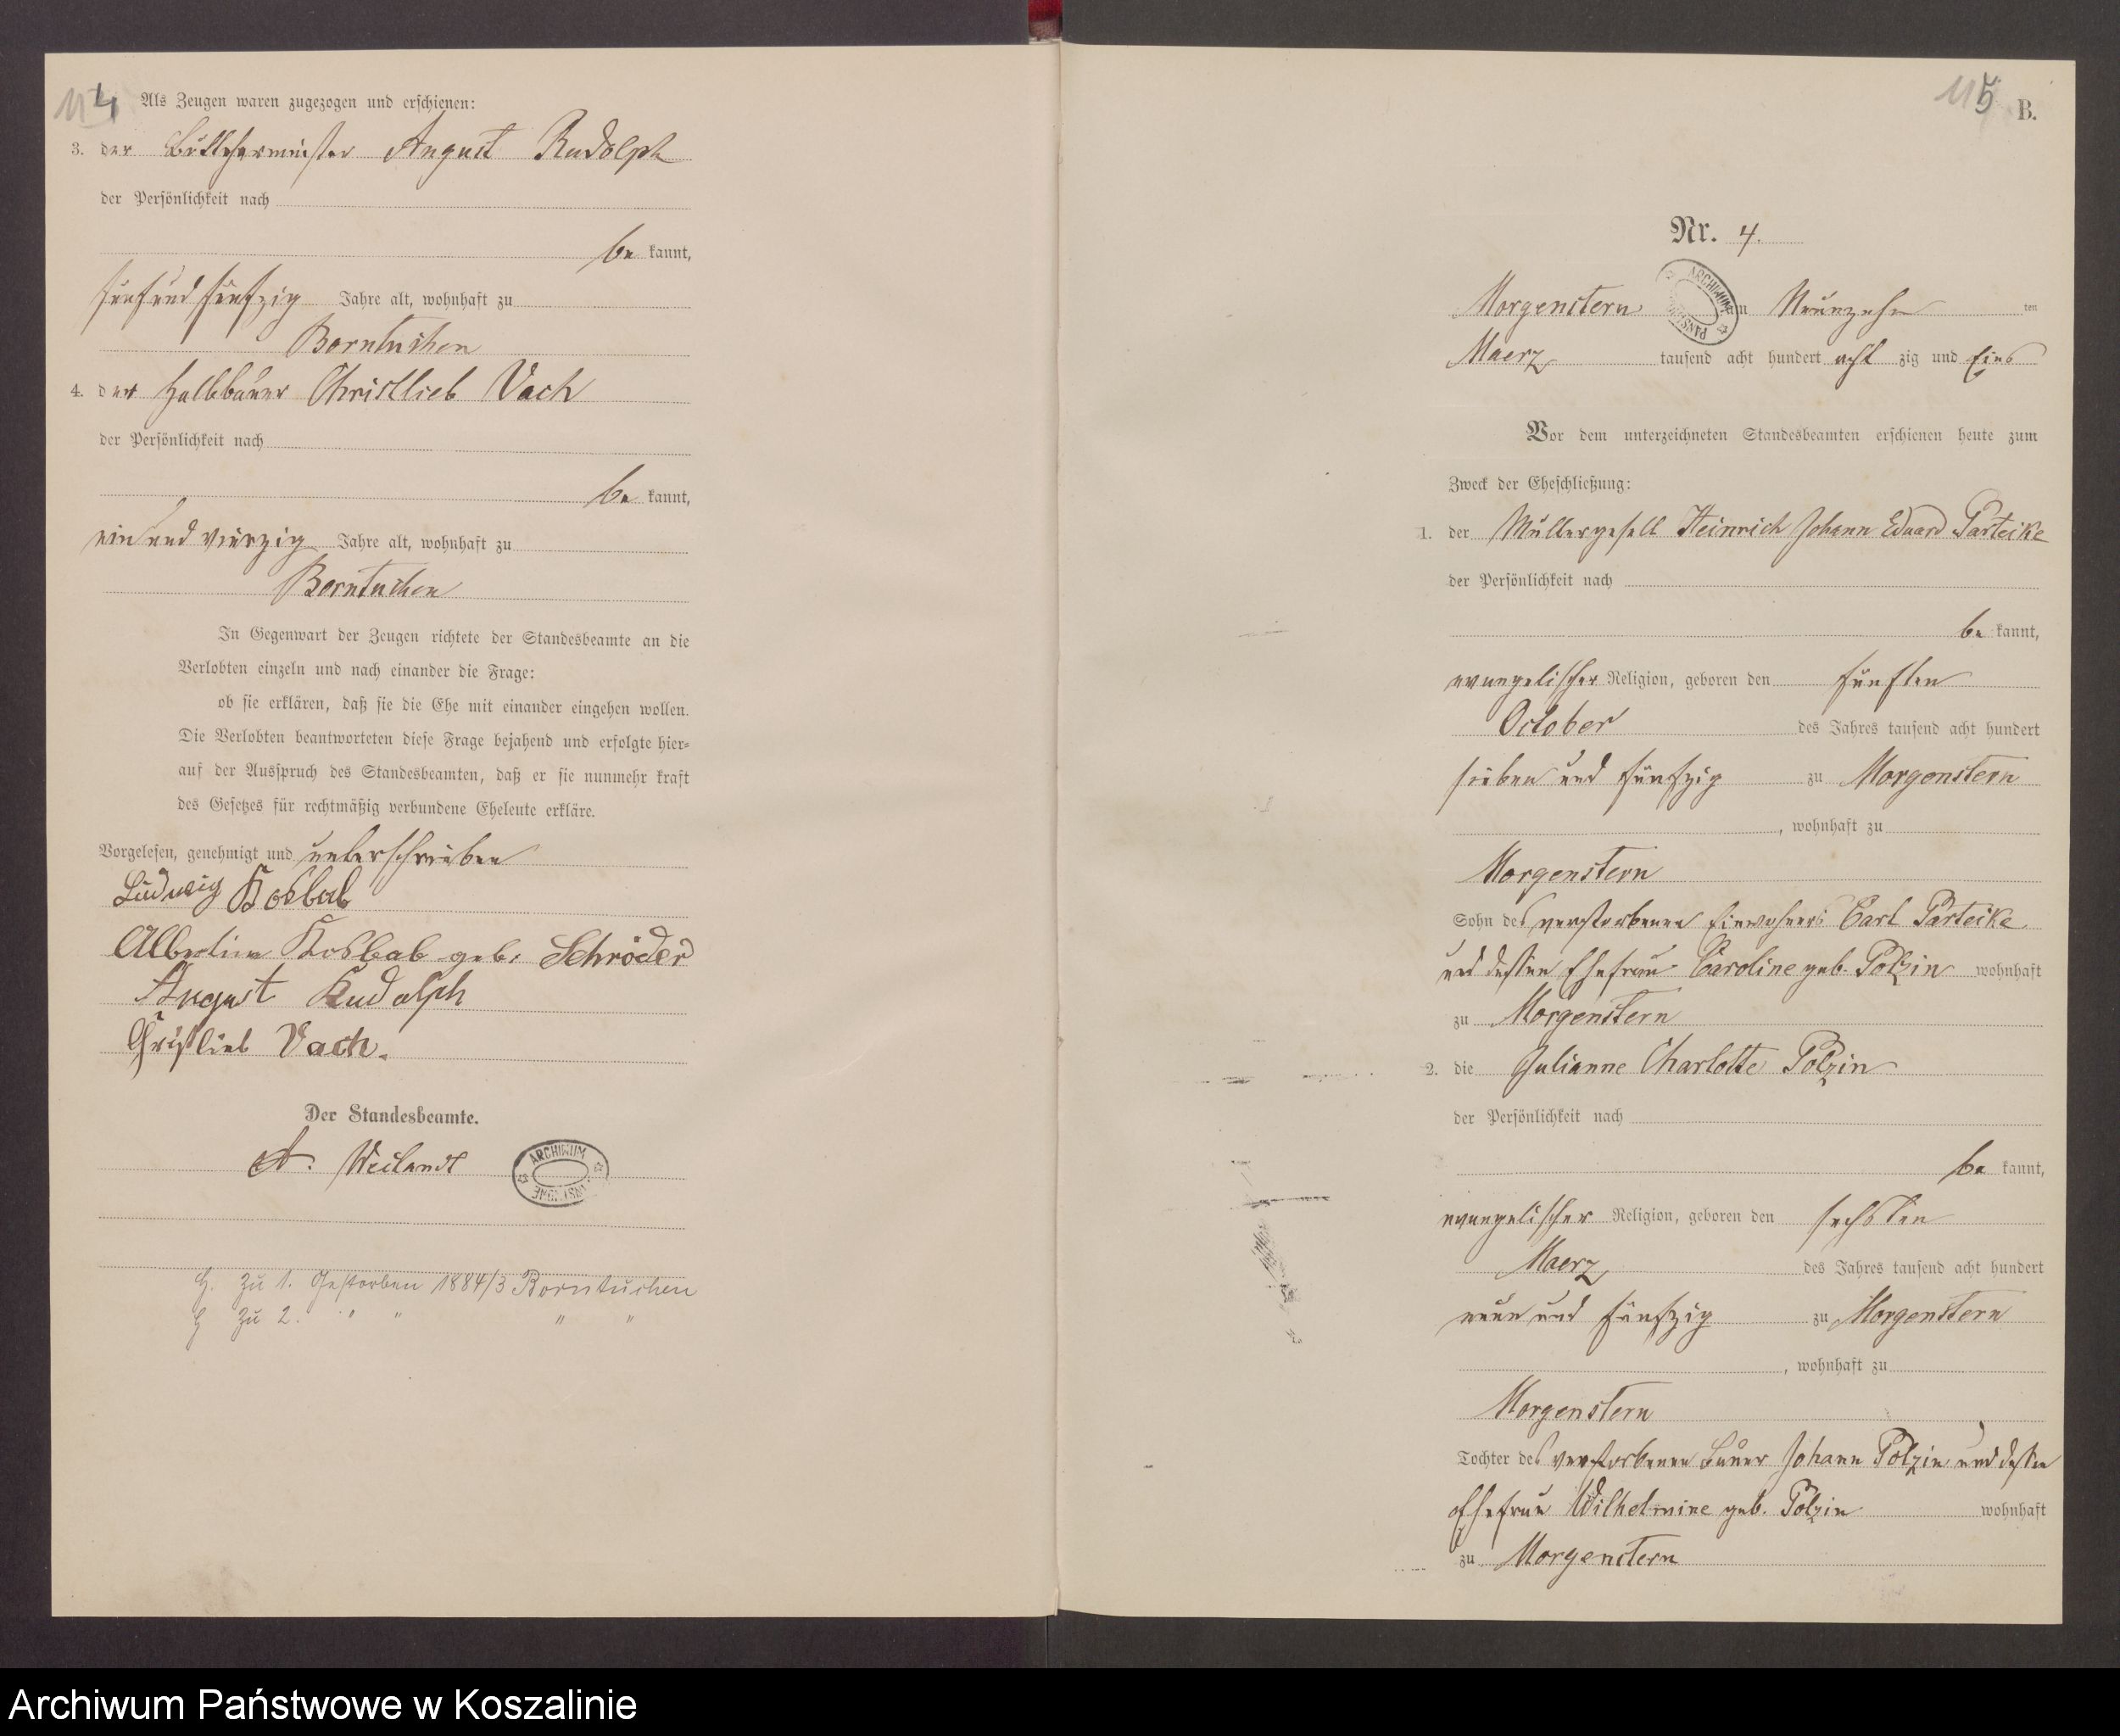 114
Als Zeugen waren zugezogen und erschienen:
3. der Böttchermeister August Rudolph
der Persönlichkeit nach
be kannt,
fünf und fünfzig Jahre alt, wohnhaft zu
Borntuchen
4. der Halbbauer Christlieb Vach
der Persönlichkeit nach
be kannt,
ein und vierzig Jahre alt, wohnhaft zu
Borntuchen
In Gegenwart der Zeugen richtete der Standesbeamte an die
Verlobten einzeln und nach einander die Frage:
ob sie erklären, daß sie die Ehe mit einander eingehen wollen.
Die Verlobten beantworteten diese Frage bejahend und erfolgte hier=
auf der Ausspruch des Standesbeamten, daß er sie nunmehr kraft
des Gesetzes für rechtmäßig verbundene Eheleute erkläre.
Vorgelesen, genehmigt und unterschrieben
Ludwig Kosbab
Albertine Kosbab geb. Schröder
August Rudolph
Christlieb Vach.
Der Standesbeamte.
A. Weilandt
ARCHIWUM
H. zu 1. Gestorben 1884/3 Borntuchen
H zu 2. " " " "
115
B.
Nr. 4.
Morgenstern am Neunzehn ten
ARCHIWUM
Maerz tausend acht hundert acht zig und Eins
Vor dem unterzeichneten Standesbeamten erschienen heute zum
Zweck der Eheschließung:
1. der Müllergesell Heinrich Johann Eduard Parteike
der Persönlichkeit nach
be kannt,
evangelischer Religion, geboren den fünften
October des Jahres tausend acht hundert
sieben und fünfzig zu Morgenstern
, wohnhaft zu
Morgenstern
Sohn des verstorbenen Einwohners Carl Parteike
und dessen Ehefrau Caroline geb. Polzin wohnhaft
zu Morgenstern
2. die Julianne Charlotte Polzin
der Persönlichkeit nach
be kannt,
evangelischer Religion, geboren den sechsten
Maerz des Jahres tausend acht hundert
neun und fünfzig zu Morgenstern
, wohnhaft zu
Morgenstern
Tochter des verstorbenen Bauer Johann Polzin und dessen
Ehefrau Wilhelmine geb. Polzin wohnhaft
zu Morgenstern
Archiwum Państwowe w Koszalinie